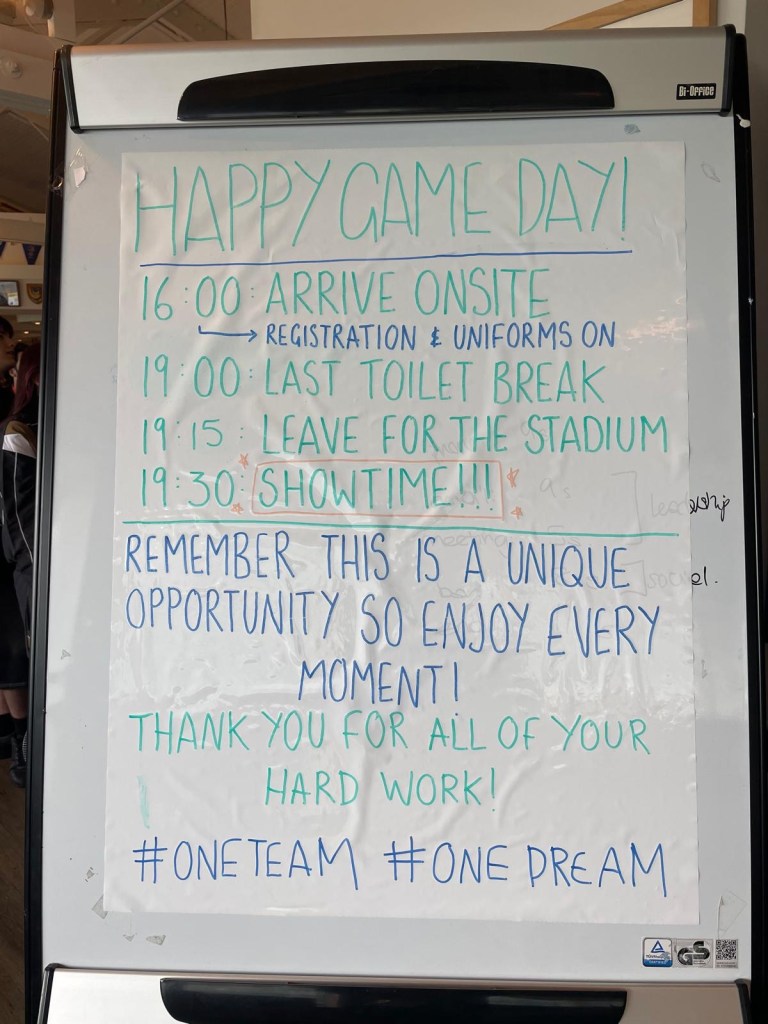 Bi-Office
HAPPY GAME DAY!
16:00: ARRIVE ONSITE
→ REGISTRATION & UNIFORMS ON
19:00: LAST TOILET BREAK
19:15: LEAVE FOR THE STADIUM
19:30: SHOWTIME!!!
REMEMBER THIS IS A UNIQUE
OPPORTUNITY SO ENJOY EVERY
MOMENT!
THANK YOU FOR ALL OF YOUR
HARD WORK!
#ONETEAM #ONE DREAM
GS